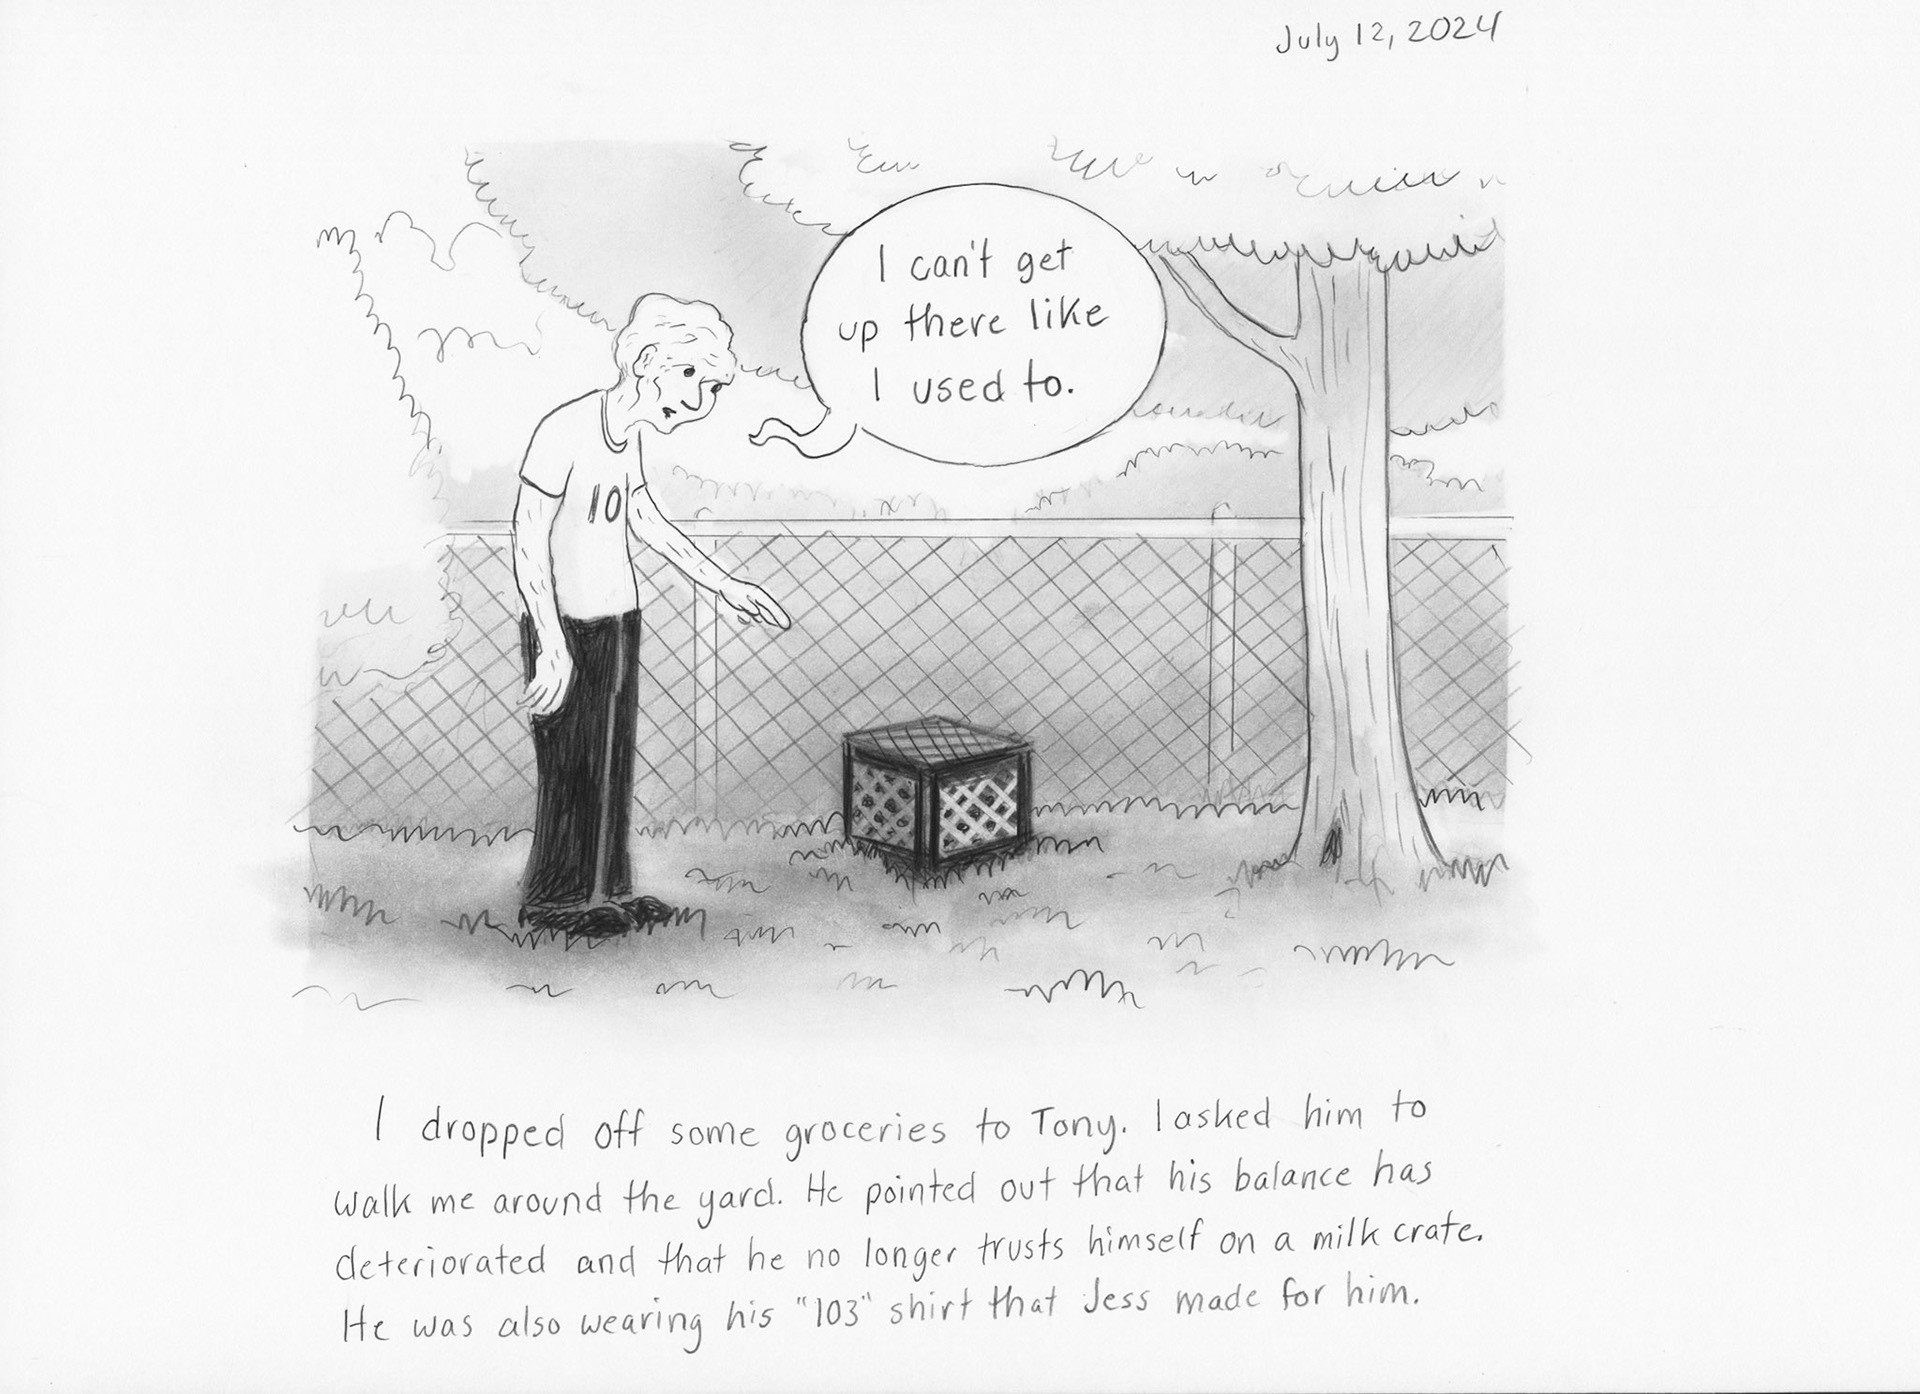 July 12, 2024
I can't get
up there like
I used to.
10
I dropped off some groceries to Tony. I asked him to
walk me around the yard. He pointed out that his balance has
deteriorated and that he no longer trusts himself on a milk crate.
He was also wearing his "103" shirt that Jess made for him.